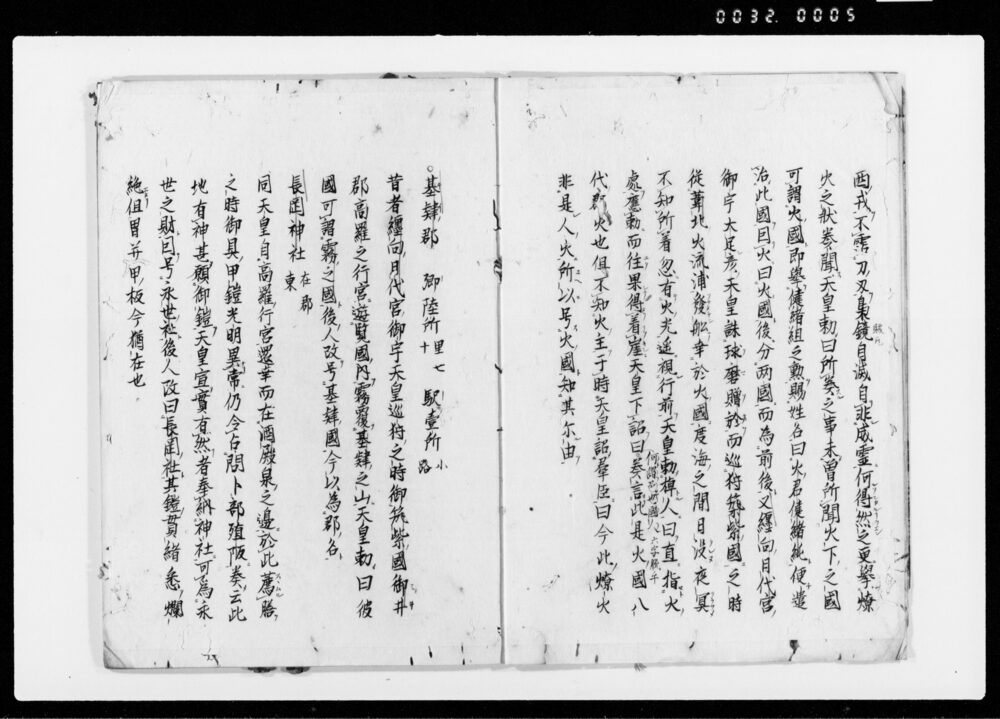 0032.0005
酉戎不霑刀刄梟鏡自滅自非威霊何得然之更擧燎
火之状奏聞天皇勅曰所奏之事未曾所聞火下之國
可謂火國即擧健緒組之勲賜姓名曰火君健緒純便遣
治此國因火曰火國後分两國而為前後又纒向日代宮
御宇大足彦天皇誅球磨贈於而巡狩筑紫國之時
從葦北火流浦發船幸於火國度海之間日没夜冥
不知所着忽有火光遥視行前天皇勅棹人曰直指火
處應勅而往果得着崖天皇下詔曰
何謂邑也國人
六字脱乎
奏言此是火國八
代郡火也但不知火主于時天皇詔羣臣曰今此燎火
非是人火所以号火國知其尓由
基肄郡 郷陸所 里十七 駅壹所 小路
昔者纒向日代宮御宇天皇巡狩之時御筑紫國御井
郡高羅之行宮遊覧國内霧覆基肄之山天皇勅曰彼
國可謂霧之國後人改号基肄國今以為郡名
長岡神社 在郡東
同天皇自高羅行宮還幸而在酒殿泉之邊於此薦膳
之時御具甲鎧光明異常仍今占問卜部殖阪奏云此
地有神甚願御鎧天皇宣實有然者奉納神社可為永
世之財因号永世社後人改曰長岡社其鎧貫緒悉爛
絶但冑并甲板今猶在也